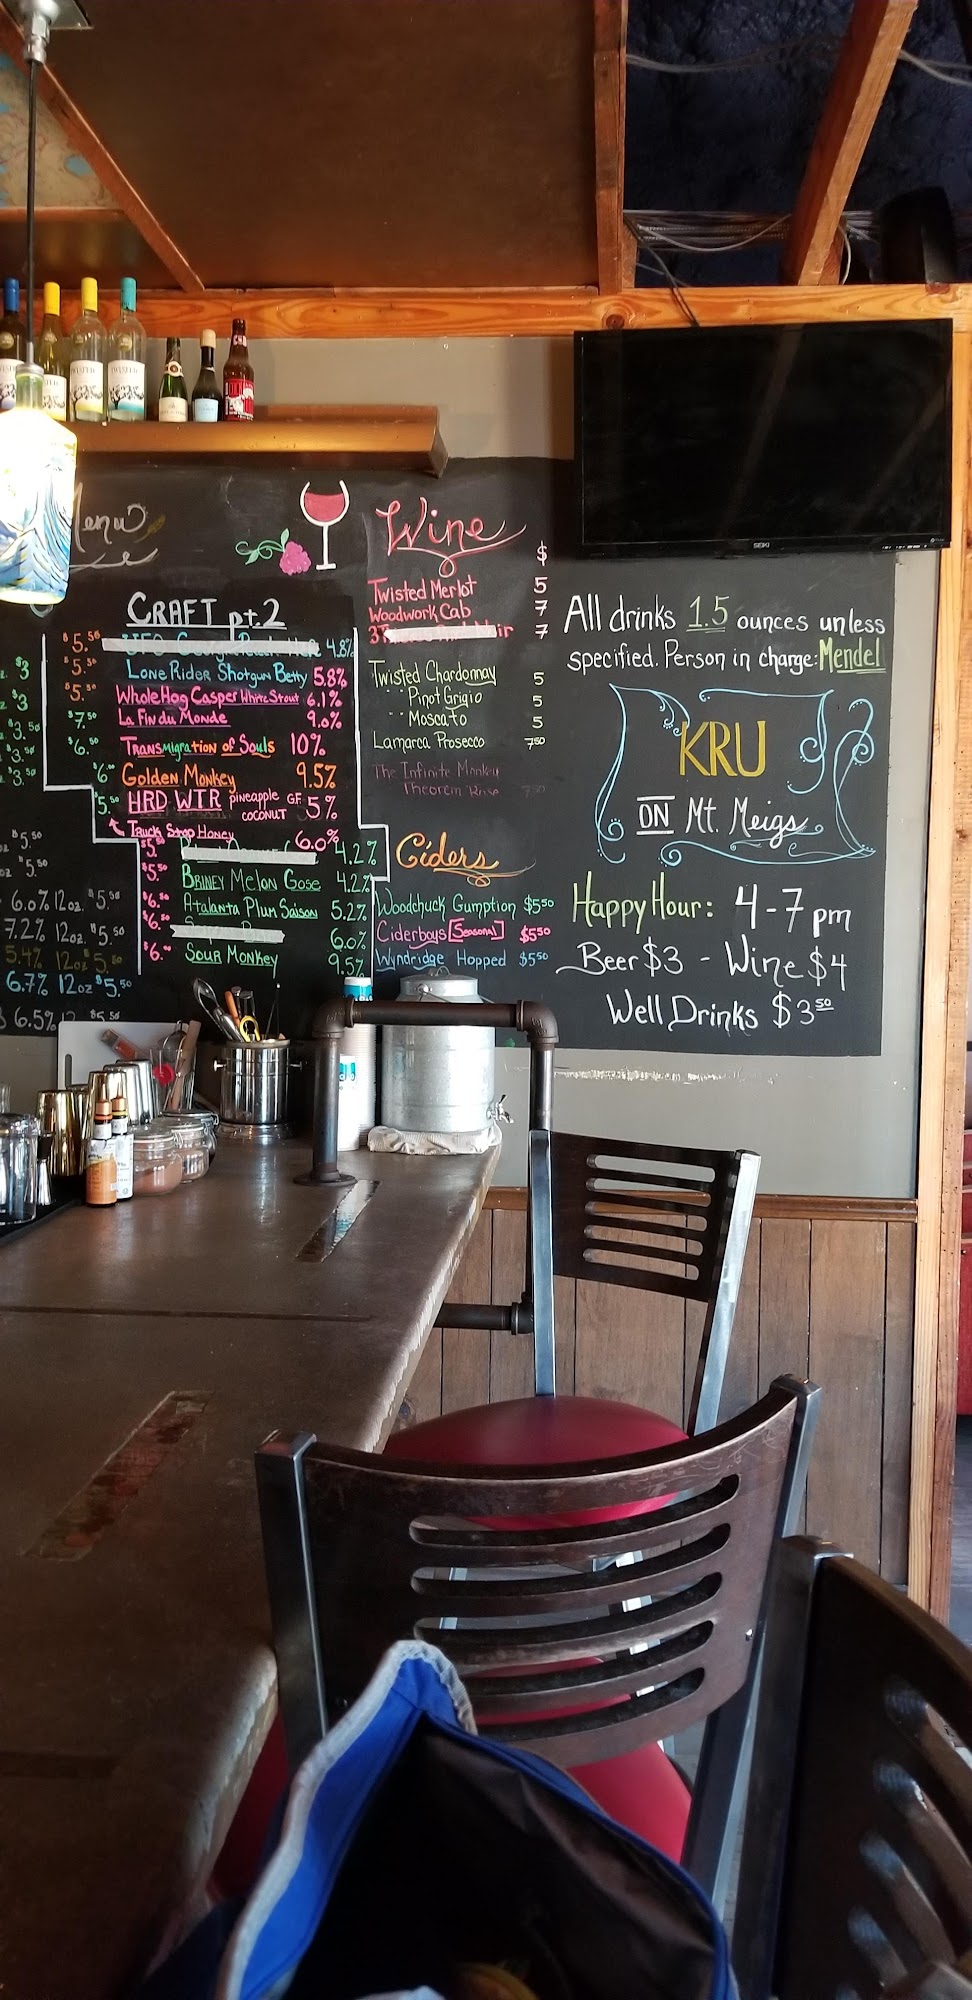 Menu
CRAFT pt.2
$5.50 4.8%
$5.50 Lone Rider Shotgun Betty 5.8%
$5.50 Whole Hog Casper White Stout 6.1%
$7.50 La Fin du Monde 9.0%
$6.50 Transmigration of Souls 10%
$6.00 Golden Monkey 9.5%
$5.50 HRD WTR pineapple coconut GF 5%
Truck Stop Honey 6.0%
$5.50 4.2%
$5.50 Briney Melon Gose 4.2%
$6.50 Atalanta Plum Saison 5.2%
$6.50 6.0%
$6.00 Sour Monkey 9.5%
$3
$3
$3.50
$3.50
$3.50
$5.50
$5.50
6.0% 12oz. $5.50
7.2% 12oz $5.50
5.4% 12oz $5.50
6.7% 12oz $5.50
6.5% 12 $5.50
Wine
$
Twisted Merlot 5
Woodwork Cab 7
7
Twisted Chardonnay 5
" " Pinot Grigio 5
" " Moscato 5
Lamarca Prosecco 7.50
The Infinite Monkey
Theorem Rose
Ciders
Woodchuck Gumption $5.50
Ciderboys [Seasonal] $5.50
Wyndridge Hopped $5.50
All drinks 1.5 ounces unless
specified. Person in charge: Mendel
KRU
ON Mt. Meigs
Happy Hour: 4-7 pm
Beer $3 - Wine $4
Well Drinks $3.50
SEIKI